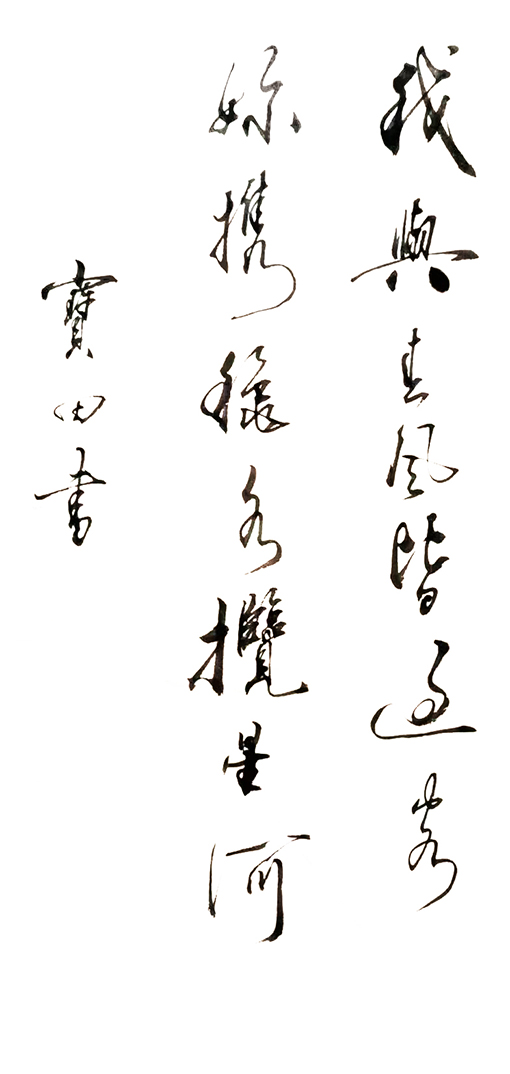 我與春風皆過客
妳攜秋水攬星河
寶田書